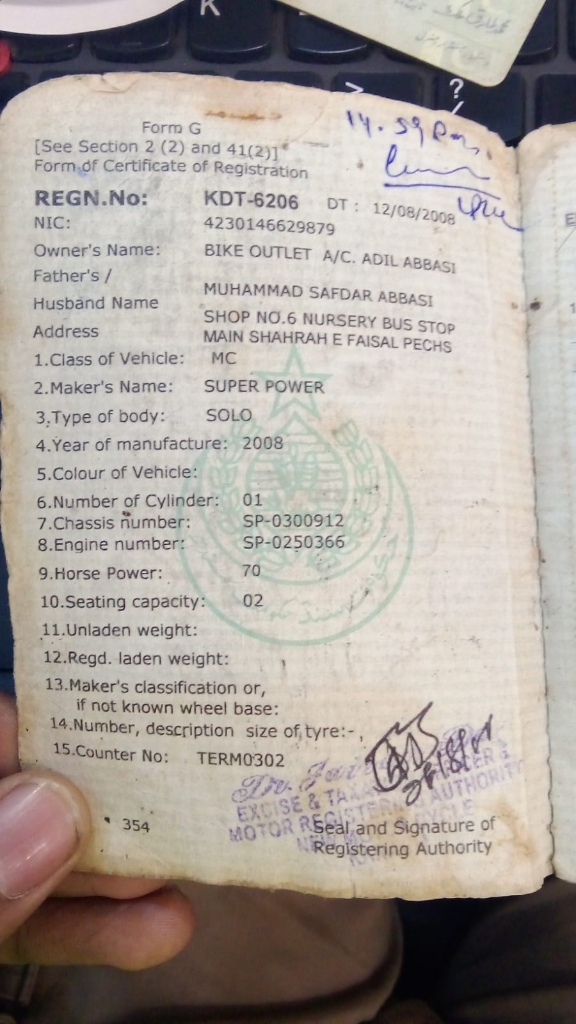 K
?
Form G
[See Section 2 (2) and 41(2)]
Form of Certificate of Registration
REGN.No: KDT-6206 DT : 12/08/2008
NIC: 4230146629879
Owner's Name: BIKE OUTLET A/C. ADIL ABBASI
Father's /
Husband Name MUHAMMAD SAFDAR ABBASI
Address SHOP NO.6 NURSERY BUS STOP
MAIN SHAHRAH E FAISAL PECHS
1.Class of Vehicle: MC
2.Maker's Name: SUPER POWER
3.Type of body: SOLO
4.Year of manufacture: 2008
5.Colour of Vehicle:
6.Number of Cylinder: 01
7.Chassis number: SP-0300912
8.Engine number: SP-0250366
9.Horse Power: 70
10.Seating capacity: 02
11.Unladen weight:
12.Regd. laden weight:
13.Maker's classification or,
if not known wheel base:
14.Number, description size of tyre:-,
15.Counter No: TERM0302
EXCISE & TAXA
MOTOR REGISTERING AUTHORITY
354
Seal and Signature of
Registering Authority